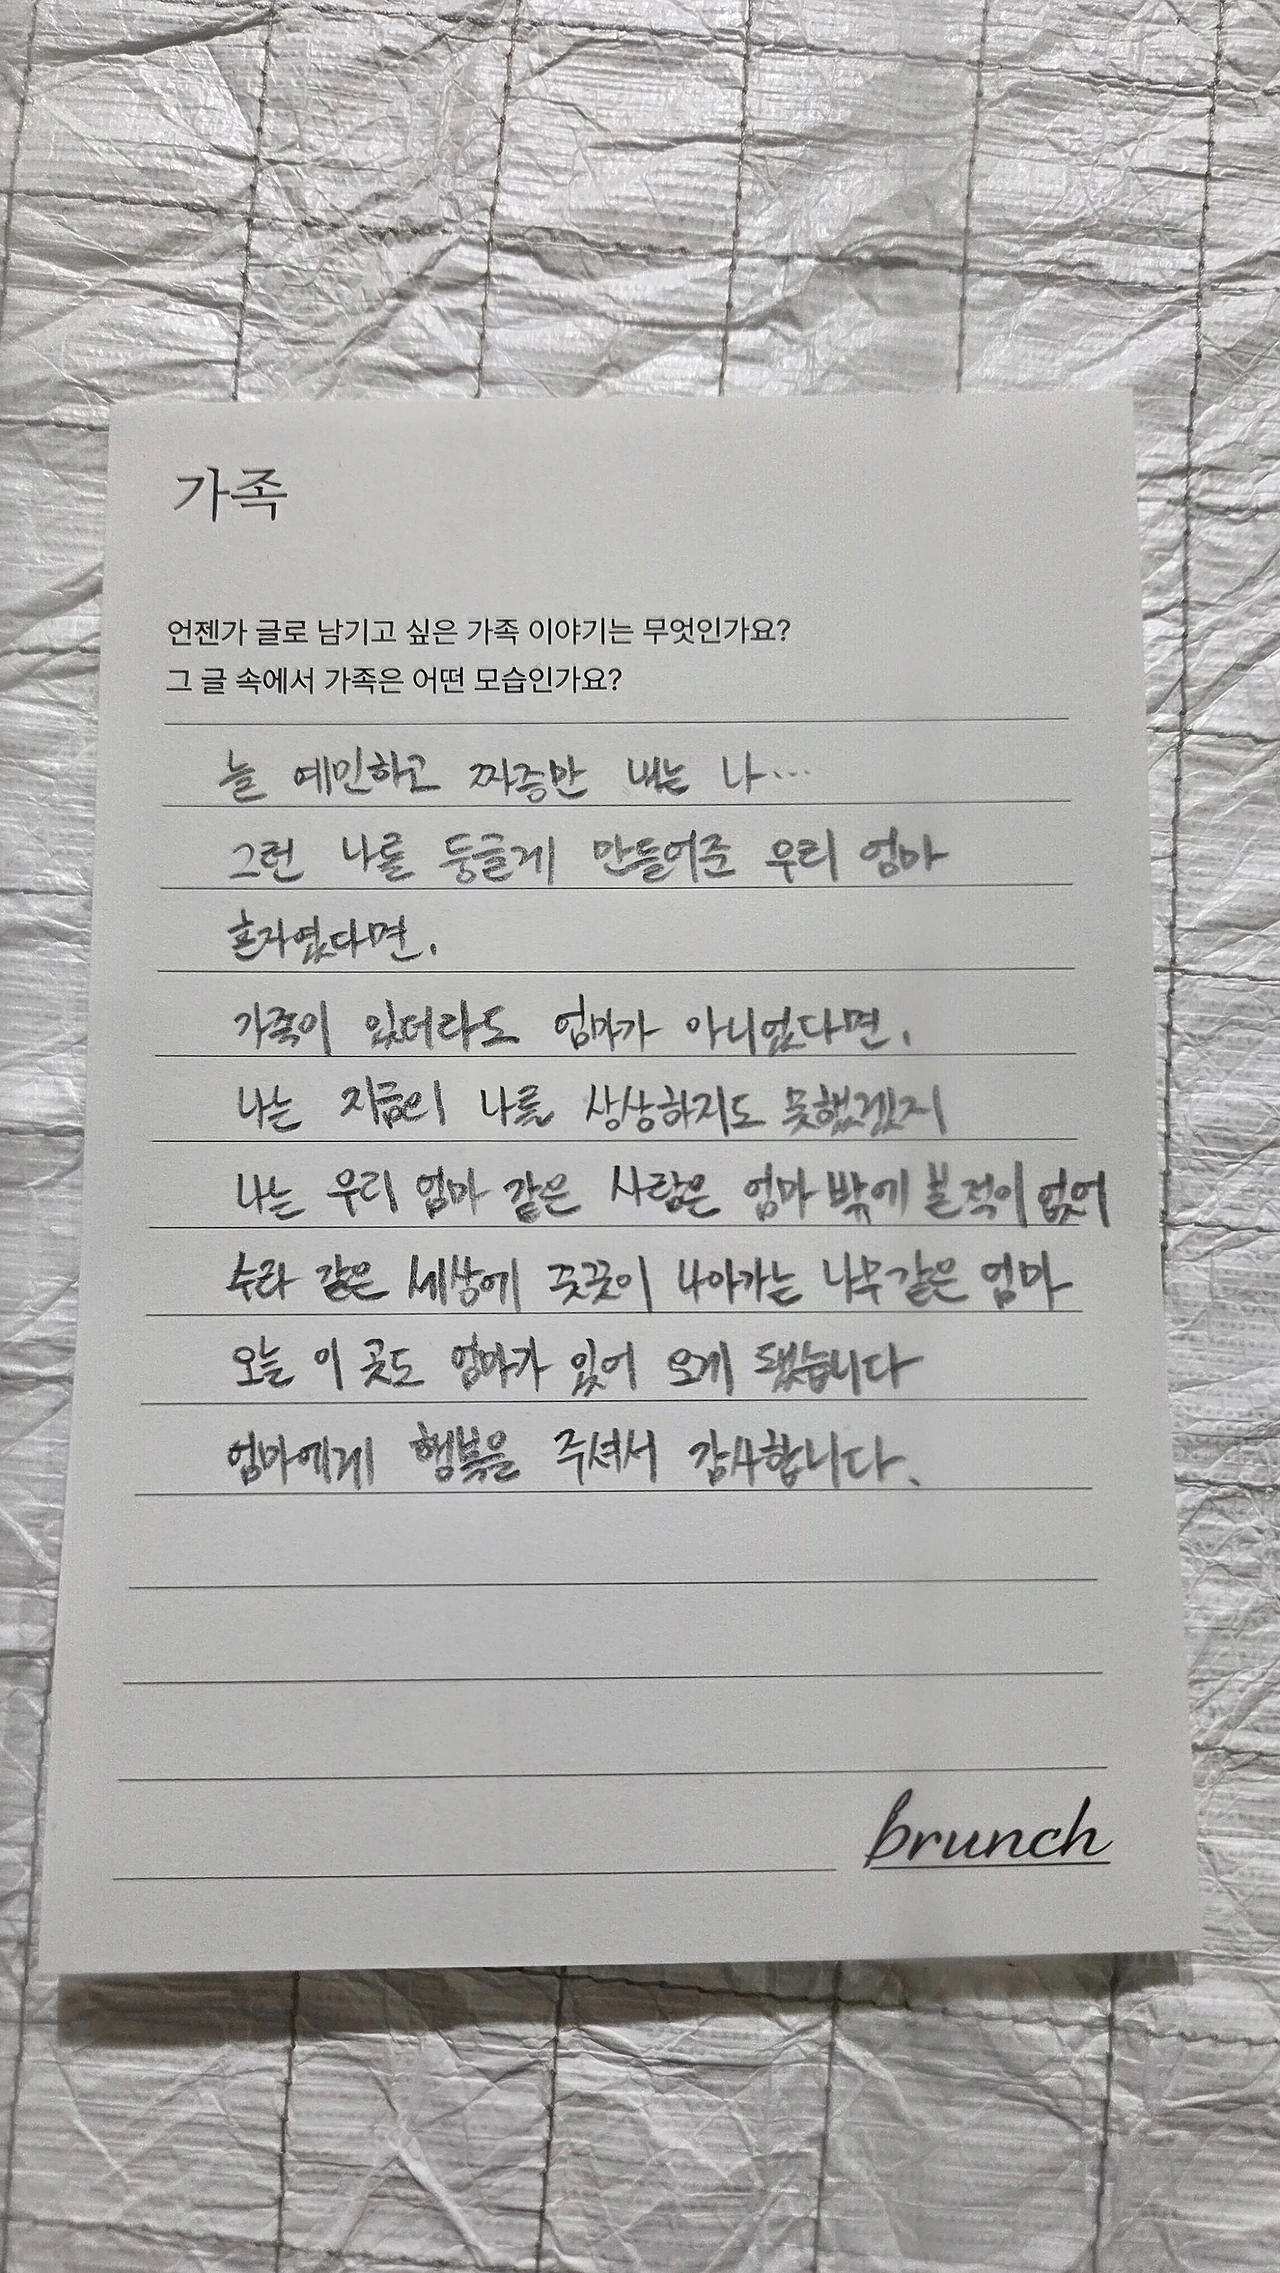 가족
언젠가 글로 남기고 싶은 가족 이야기는 무엇인가요?
그 글 속에서 가족은 어떤 모습인가요?
늘 예민하고 짜증만 내는 나...
그런 나를 둥글게 만들어준 우리 엄마
혼자였다면,
가족이 있더라도 엄마가 아니었다면,
나는 지금의 나를 상상하지도 못했겠지
나는 우리 엄마 같은 사람은 엄마 밖에 본 적이 없어
수라 같은 세상에 꿋꿋이 나아가는 나무같은 엄마
오늘 이 곳도 엄마가 있어 오게 됐습니다
엄마에게 행복을 주셔서 감사합니다.
brunch